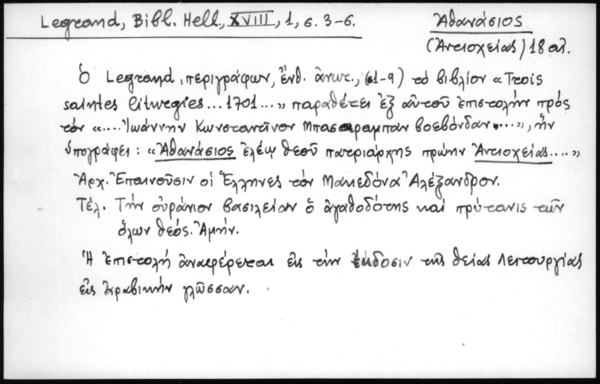 Legrand, Bibl. Hell, XVIII, 1, σ. 3-6.
Ἀθανάσιος
(Ἀντιοχείας) 18 αἰ.
Ὁ Legrand, περιγράφων, ἔνθ. ἄνωτ., (1-9) τὸ βιβλίον «Trois
saintes liturgies... 1701...» παραθέτει ἐξ αὐτοῦ ἐπιστολὴν πρὸς
τὸν «....Ἰωάννην Κωνσταντῖνον Μπασαραμπᾶν βοεβόνδαν....», ἣν
ὑπογράφει: «Ἀθανάσιος ἐλέῳ θεοῦ πατριάρχης πρώην Ἀντιοχείας....»
Ἀρχ. Ἐπαινοῦσιν οἱ Ἕλληνες τὸν Μακεδόνα Ἀλέξανδρον.
Τέλ. Τὴν οὐράνιον βασιλείαν ὁ ἀγαθοδότης καὶ πρύτανις τῶν
ὅλων θεός. Ἀμήν.
Ἡ ἐπιστολὴ ἀναφέρεται εἰς τὴν ἔκδοσιν τῆς θείας λειτουργίας
εἰς ἀραβικὴν γλῶσσαν.